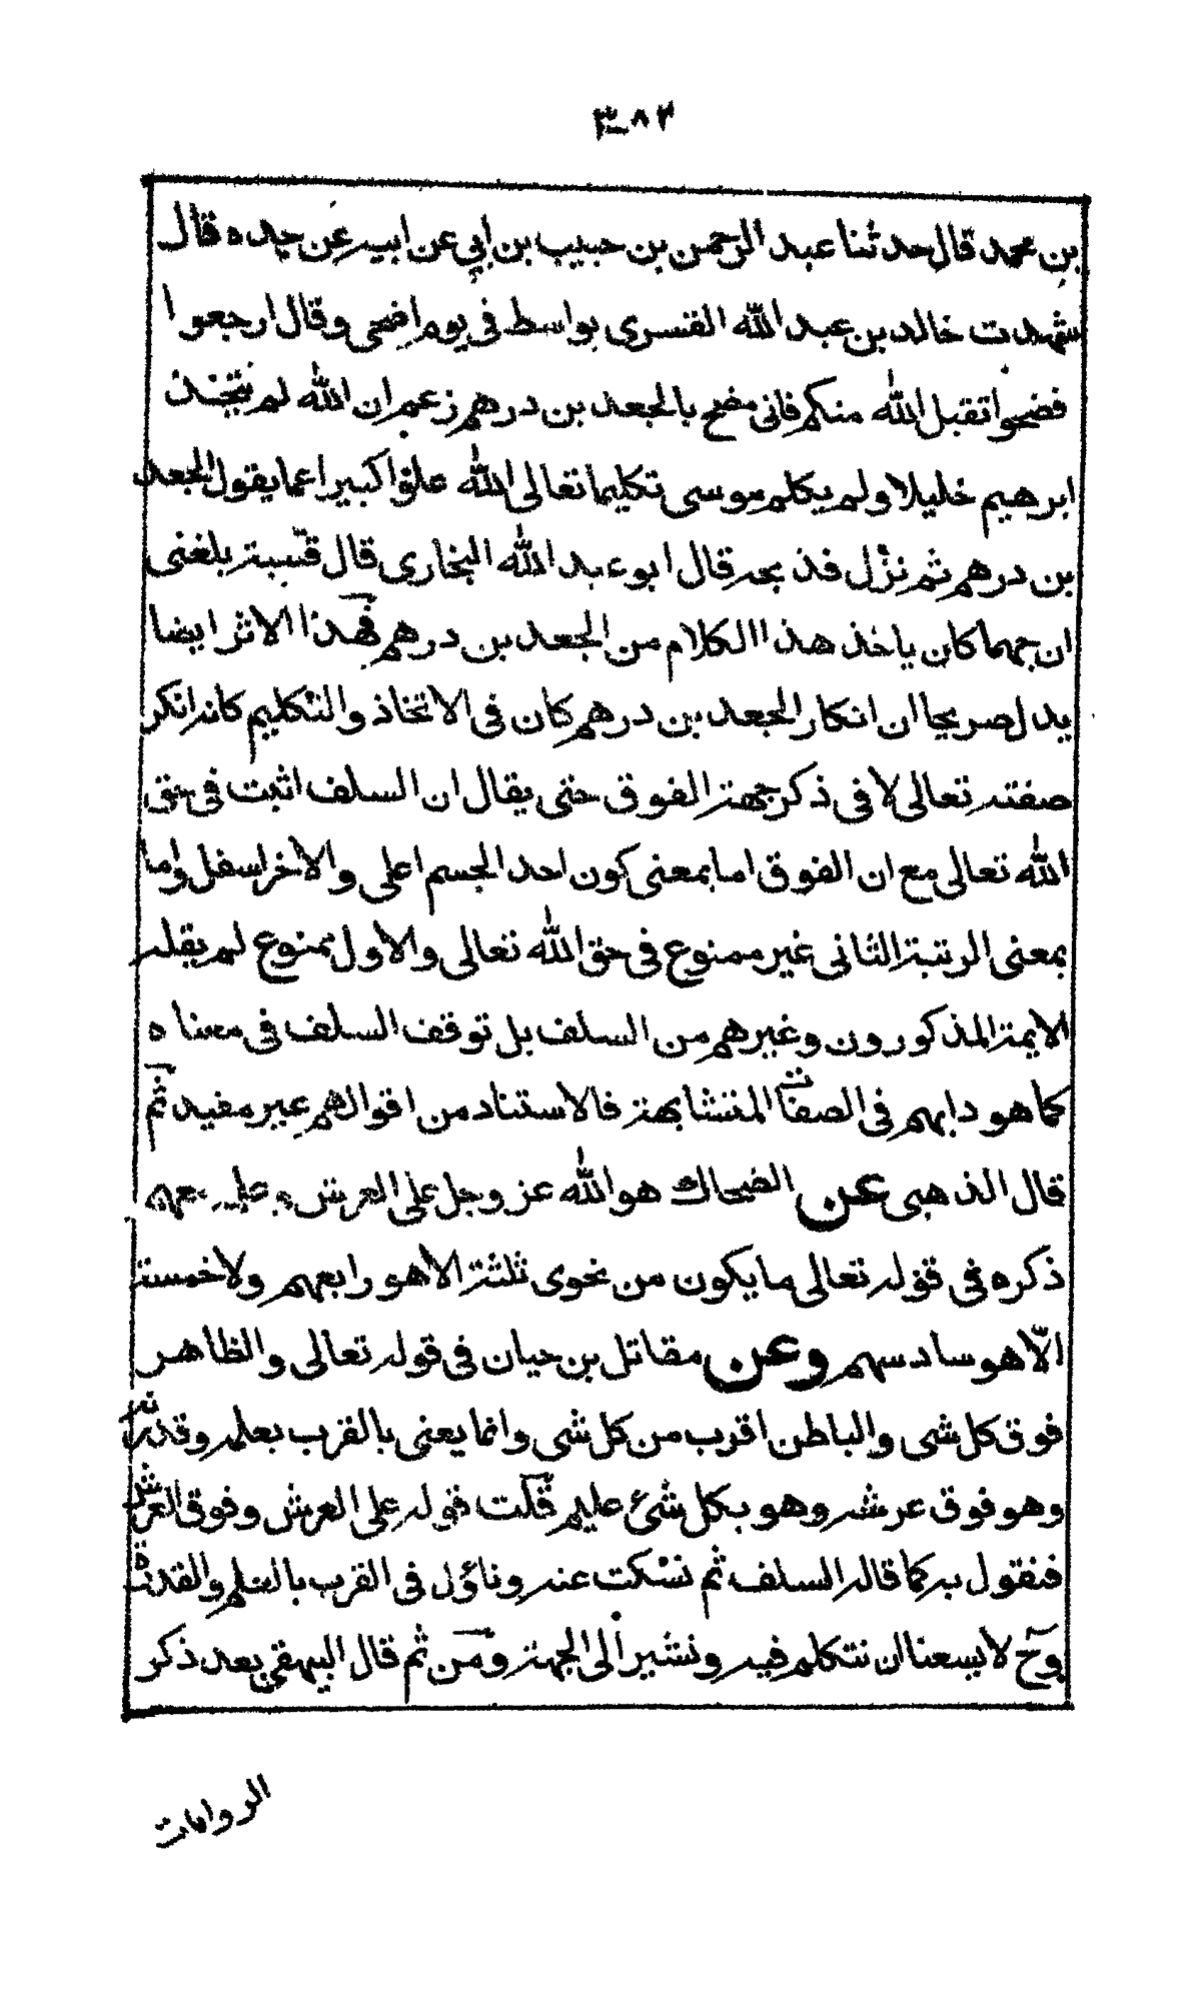 ٣٨٢
بن محمد قال حدثنا عبد الرحمن بن حبيب بن ابي عن ابيه عن جده قال
شهدت خالد بن عبد الله القسرى بواسط فى يوم اضحى وقال ارجعوا
فضحوا تقبل الله منكم فانى مضح بالجعد بن درهم زعم ان الله لم يتخذ
ابرهيم خليلا ولم يكلم موسى تكليما تعالى الله علوا كبيرا عما يقول الجعد
بن درهم ثم نزل فذبحه قال ابو عبد الله البخارى قال قتيبة بلغنى
ان جهما كان ياخذ هذا الكلام من الجعد بن درهم فهذا الاثر ايضا
يدل صريحا ان انكار الجعد بن درهم كان فى الاتخاذ والتكليم كانه انكر
صفته تعالى لا فى ذكر جهة الفوق حتى يقال ان السلف اثبت فى حق
الله تعالى مع ان الفوق اما بمعنى كون احد الجسم اعلى والاخر اسفل واما
بمعنى الرتبة الثانى غير ممنوع فى حق الله تعالى والاول ممنوع لم يقله
الايمة المذكورون وغيرهم من السلف بل توقف السلف فى معناه
كما هو دابهم فى الصفات المتشابهة فالاستناد من اقوالهم غير مفيد ثم
قال الذهبى عن الضحاك هو الله عز وجل على العرش وعلمه معهم
ذكره فى قوله تعالى ما يكون من نجوى ثلثة الا هو رابعهم ولا خمسة
الّا هو سادسهم وعن مقاتل بن حيان فى قوله تعالى والظاهر
فوق كل شى والباطن اقرب من كل شى وانما يعنى بالقرب بعلمه وقدرته
وهو فوق عرشه وهو بكل شئ عليم قلت قوله على العرش وفوق العرش
فنقول به كما قاله السلف ثم نسكت عنه وناؤل فى القرب بالعلم والقدرة
وح لا يسعنا ان نتكلم فيه ونشير الى الجهة ومن ثم قال البيهقي بعد ذكر
الروايات